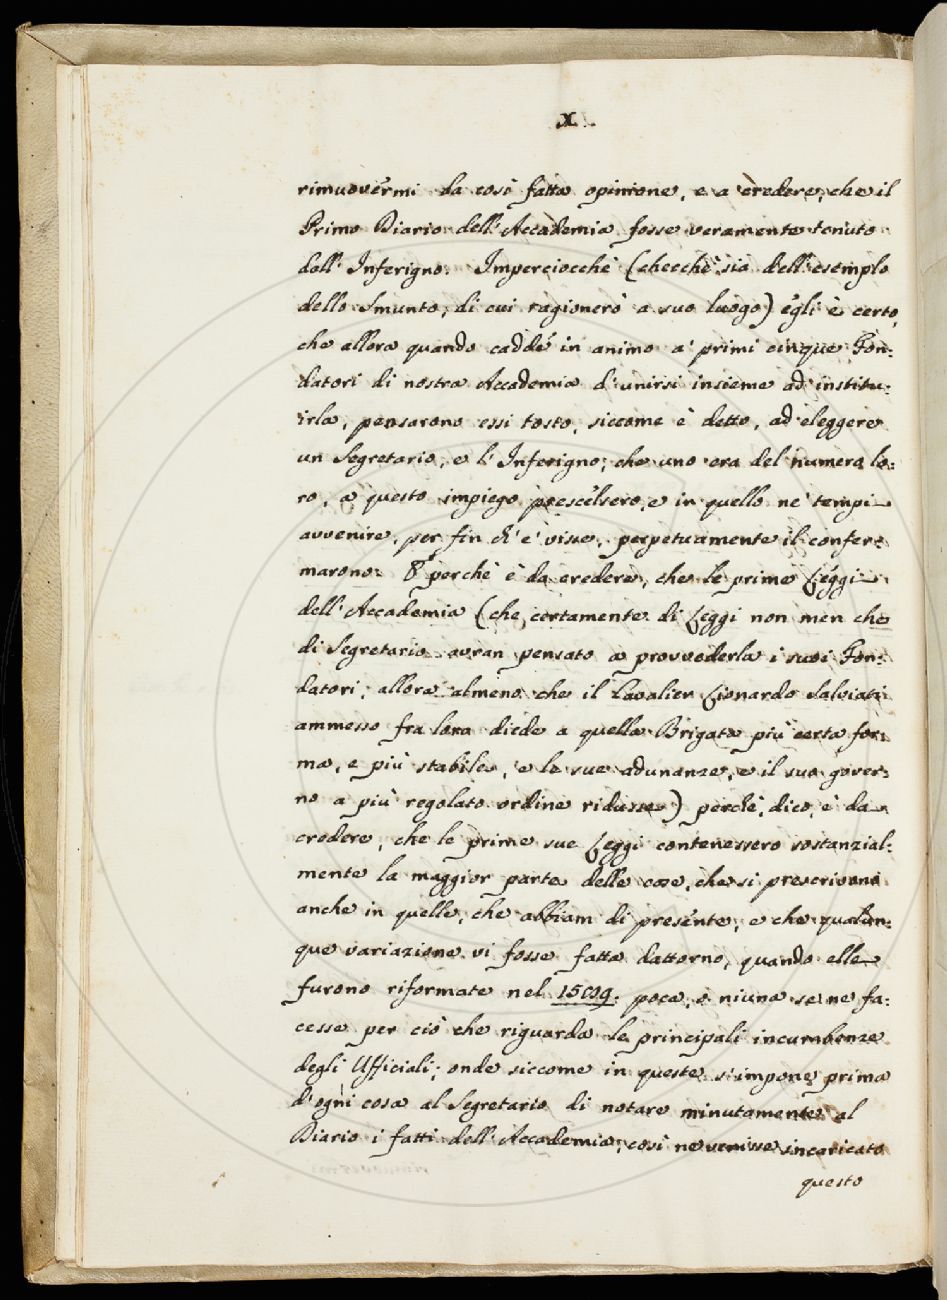 X.
rimuovermi da così fatta opinione, e a credere, che il
Primo Diario dell'Accademia fosse veramente tenuto
dall'Inferigno. Imperciocchè (checchè sia dell'esemplo
dello Smunto, di cui ragionerò a suo luogo) egli è certo,
che allora quando caddé in animo a' primi cinque Fon:
datori di nostra Accademia d'unirsi insieme ad institu:
irla, pensarono essi tosto, siccome è detto, ad eleggere
un Segretario, e l'Inferigno, che uno era del numero lo:
ro, a questo impiego prescelsero, e in quello ne' tempi
avvenire, per fin ch'e' visse, perpetuamente il confer:
marono. E perchè è da credere, che le prime Leggi
dell'Accademia (che certamente di Leggi non men che
di Segretario avran pensato a provvederla i suoi Fon:
datori, allora almeno che il Cavalier Lionardo Salviati
ammesso fra loro diede a quella Brigata più certa for:
ma, e più stabile, e le sue adunanze, e il suo gover:
no a più regolato ordine ridusse) perchè, dico, è da
credere, che le prime sue Leggi contenessero sostanzial:
mente la maggior parte delle cose, che si prescrivono
anche in quelle, che abbiam di presente, e che qualun:
que variazione vi fosse fatta dattorno, quando elle
furono riformate nel 1589. poca, o niuna se ne fa:
cesse per ciò che riguarda le principali incumbenze
degli Ufficiali; onde siccome in queste s'impone prima
d'ogni cosa al Segretario di notare minutamente al
Diario i fatti dell'Accademia, così ne venisse incaricato
questo